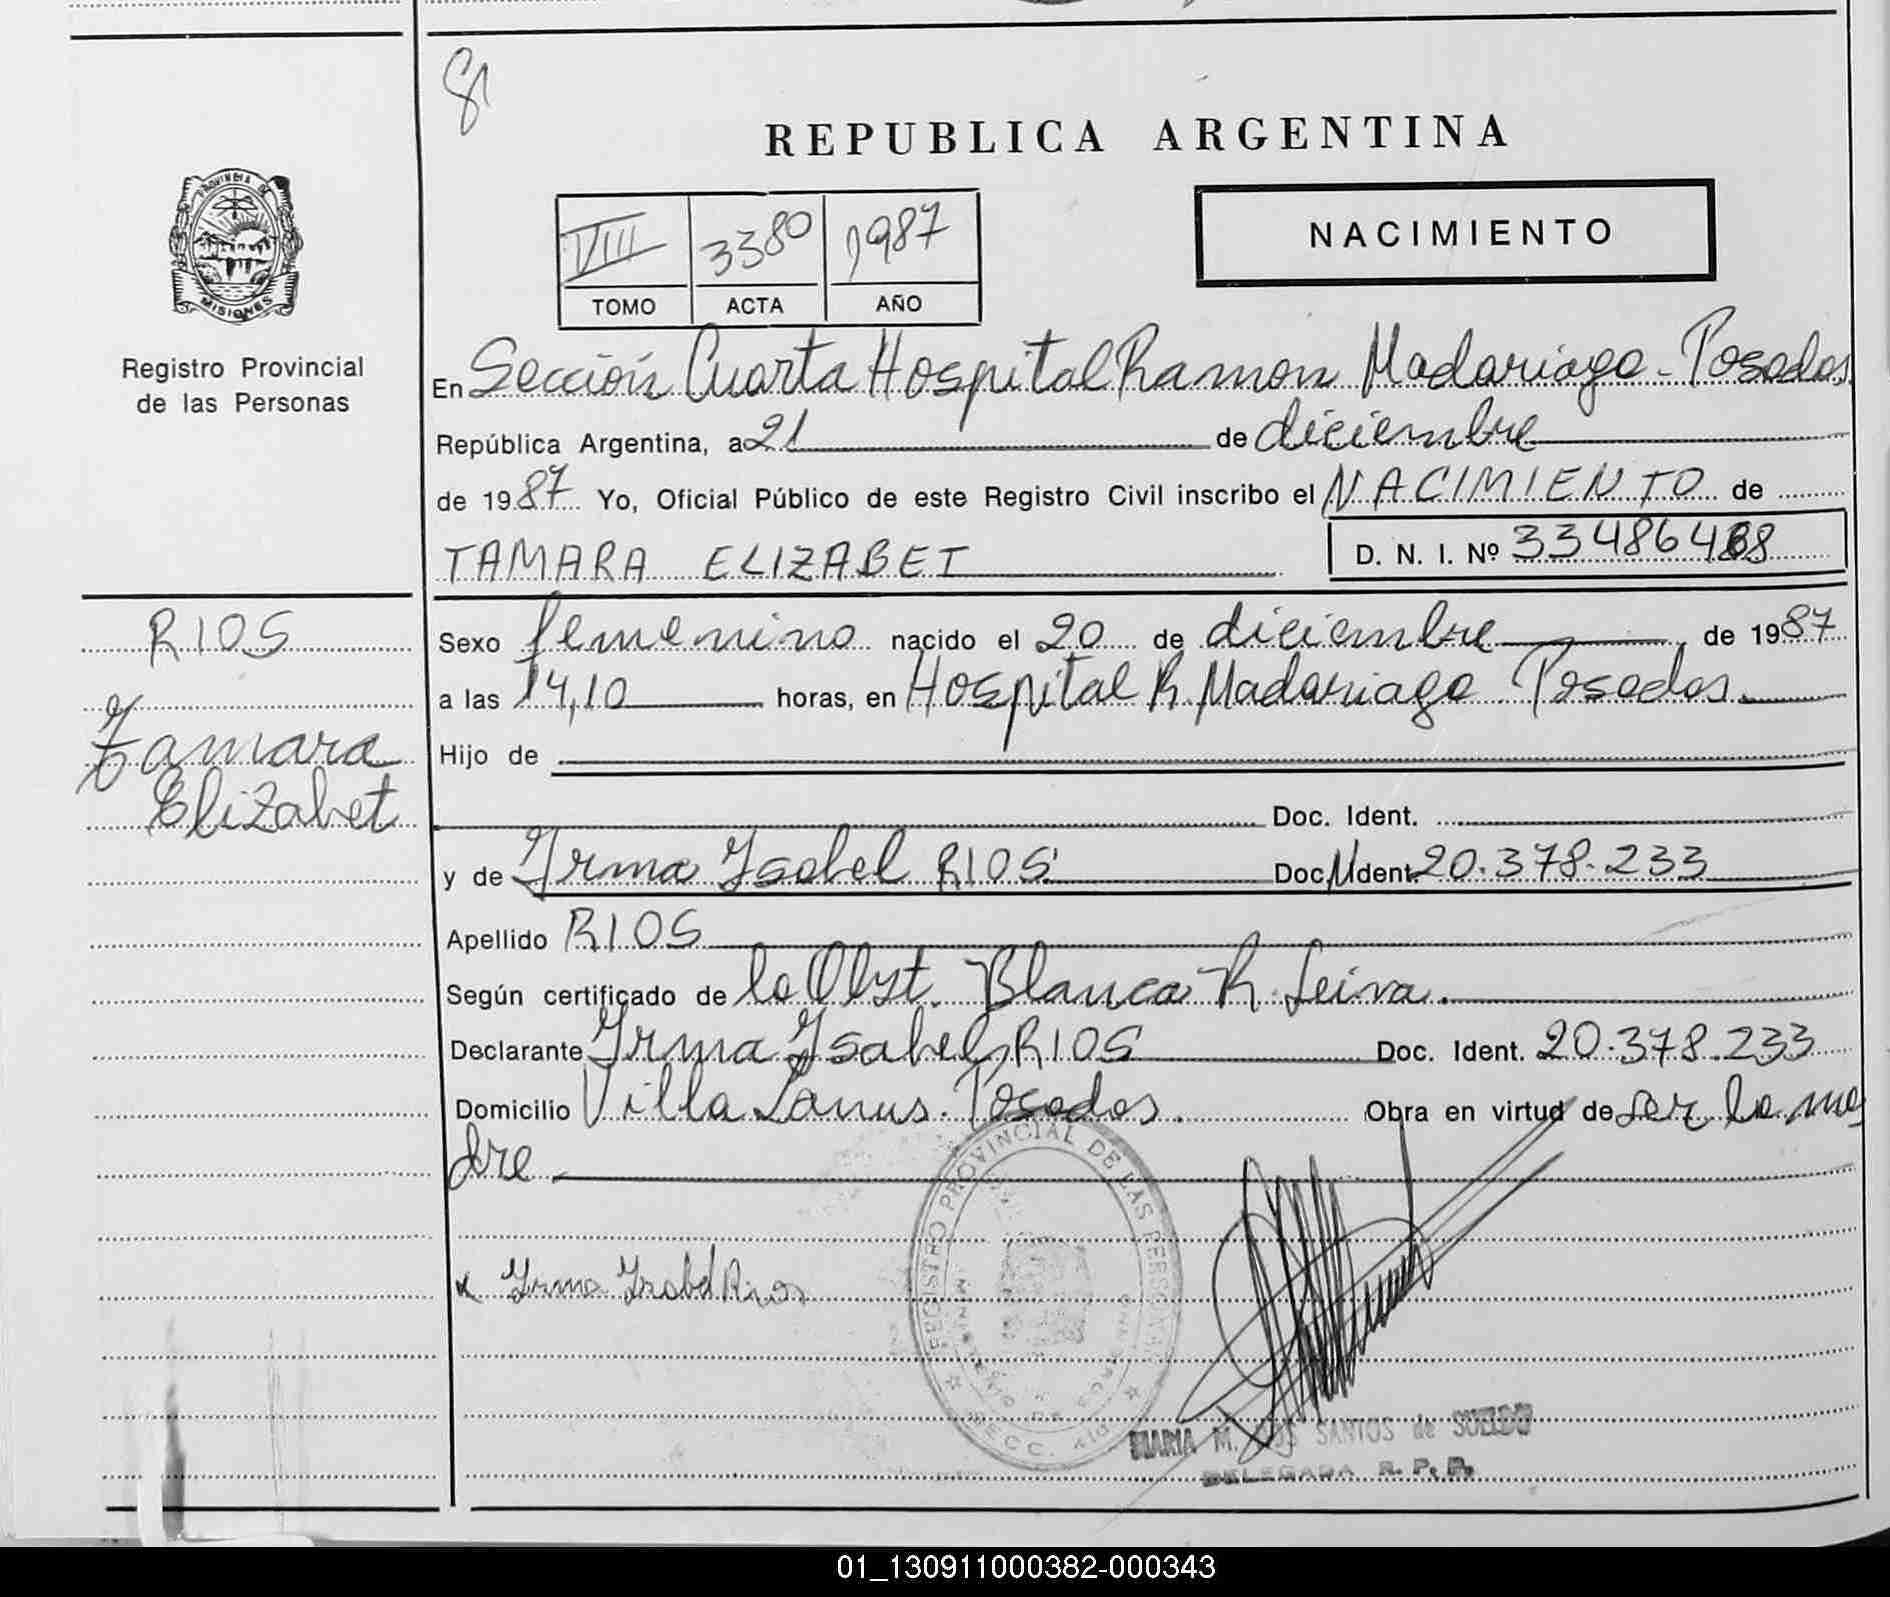 81
REPUBLICA ARGENTINA
PROVINCIA DE MISIONES
Registro Provincial
de las Personas
VIII 3380 1987
TOMO ACTA AÑO
NACIMIENTO
En Sección Cuarta Hospital Ramon Madariaga - Posadas
República Argentina, a 21 de diciembre
de 1987 Yo, Oficial Público de este Registro Civil inscribo el NACIMIENTO de
TAMARA ELIZABET
D. N. I. Nº
RIOS
Tamara
Elizabet
Sexo femenino nacido el 20 de diciembre de 1987
a las 14,10 horas, en Hospital R. Madariaga Posadas.
Hijo de
Doc. Ident.
y de Irma Ysabel RIOS Doc. Ident. 20.378.233
Apellido RIOS
Según certificado de la Obst. Blanca R. Leiva.
Declarante Irma Ysabel RIOS Doc. Ident. 20.378.233
Domicilio Villa Lanus. Posadas. Obra en virtud de ser la ma
dre
x Irma Isabel Rios
REGISTRO PROVINCIAL DE LAS PERSONAS
SECC. 4ta
MARIA M. DOS SANTOS de SUELDO
DELEGADA R. P. P.
01_130911000382-000343